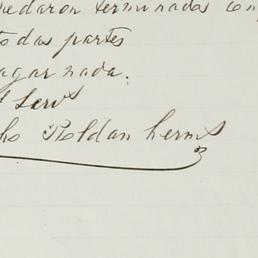 quedaron terminadas con
todas partes
pagar nada.
Servs
Roldan herms